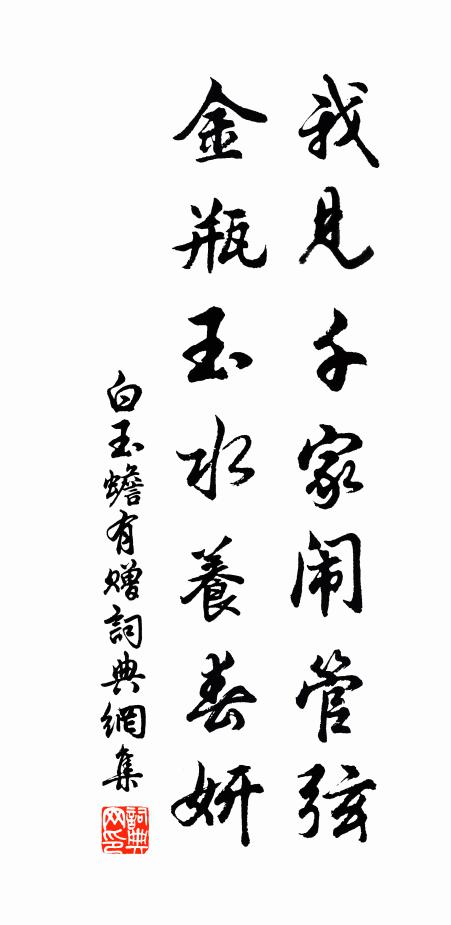 我见千家闹管弦
金瓶玉水養春妍
白玉蟾有赠詞典網集
詞典网印